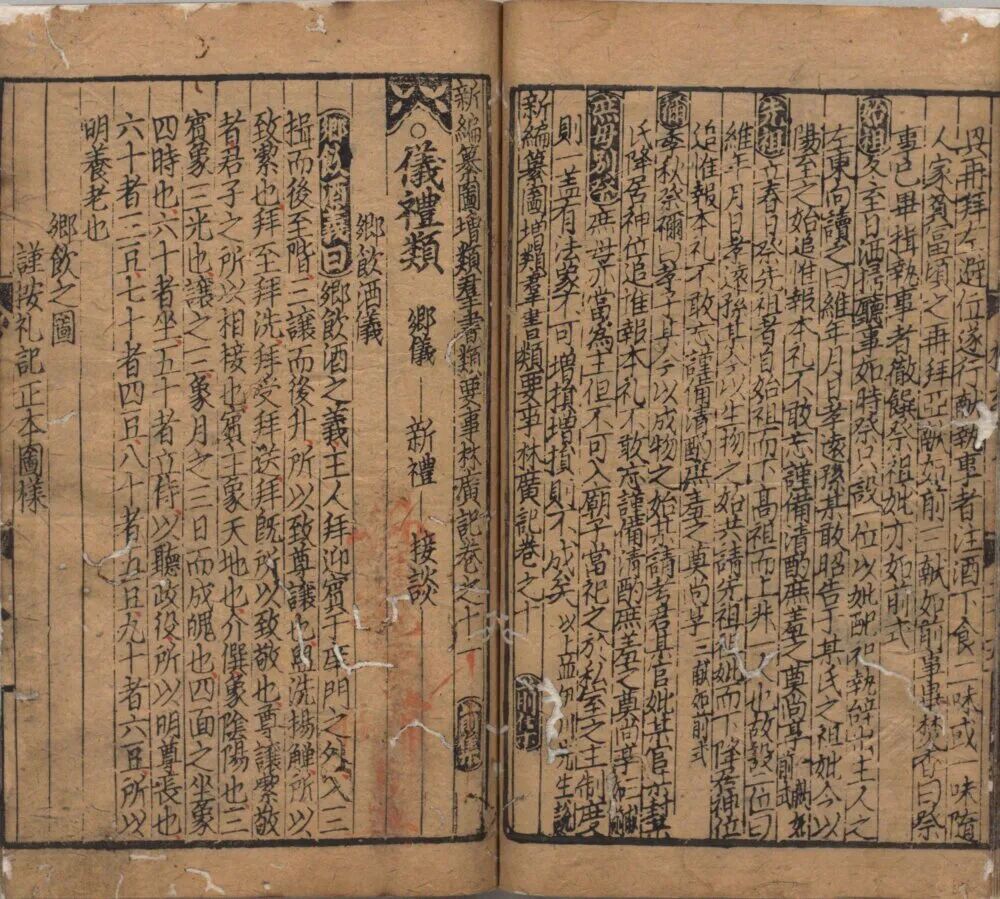 畢再拜左避位遂行献執事者注酒下食一味或二味隨
人家貧富頃之再拜亞献如前三献如前事畢焚香曰祭
事已畢揖執事者徹饌祭祖妣亦如前式
始祖 冬至日洒掃廳事如時祭只設一位以妣配祀執辞出主人之
左東向讀之曰維年月日孝遠孫某敢昭告于某氏之祖妣今以
陽至之始追惟報本礼不敢忘謹備清酌庶羞之奠尚享 三献如前式
先祖 立春日祭先祖者自始祖而下高祖而上非一人也故設二位曰
維年月日孝遠孫某今以生物之始共請先祖祖妣而下降居神位
追惟報本礼不敢忘謹備清酌庶羞之奠尚享 三献如前式
禰 季秋祭禰曰孝子某今以成物之始共請考君某官妣某官某封某
氏降居神位追惟報本礼不敢忘謹備清酌庶羞之奠尚享 三献如前
無母別祭 庶母不當為主但不可入廟子當祀之於私室之主制度
則一蓋有法象不可增損增損則不成矣 以上並伊川先生說
新編纂圖增類羣書類要事林廣記卷之十
新編纂圖增類羣書類要事林廣記卷之十一
儀禮類 鄉儀 新禮 接談
鄉飲酒儀
鄉飲酒義曰 鄉飲酒之義主人拜迎賓于庠門之外入三
揖而後至階三讓而後升所以致尊讓也盥洗揚觶所以
致絜也拜至拜洗拜受拜送拜既所以致敬也尊讓絜敬
者君子之所以相接也賓主象天地也介僎象陰陽也三
賓象三光也讓之三象月之三日而成魄也四面之坐象
四時也六十者坐五十者立侍以聽政役所以明尊長也
六十者三豆七十者四豆八十者五豆九十者六豆所以
明養老也
鄉飲之圖
謹按礼記正本圖樣